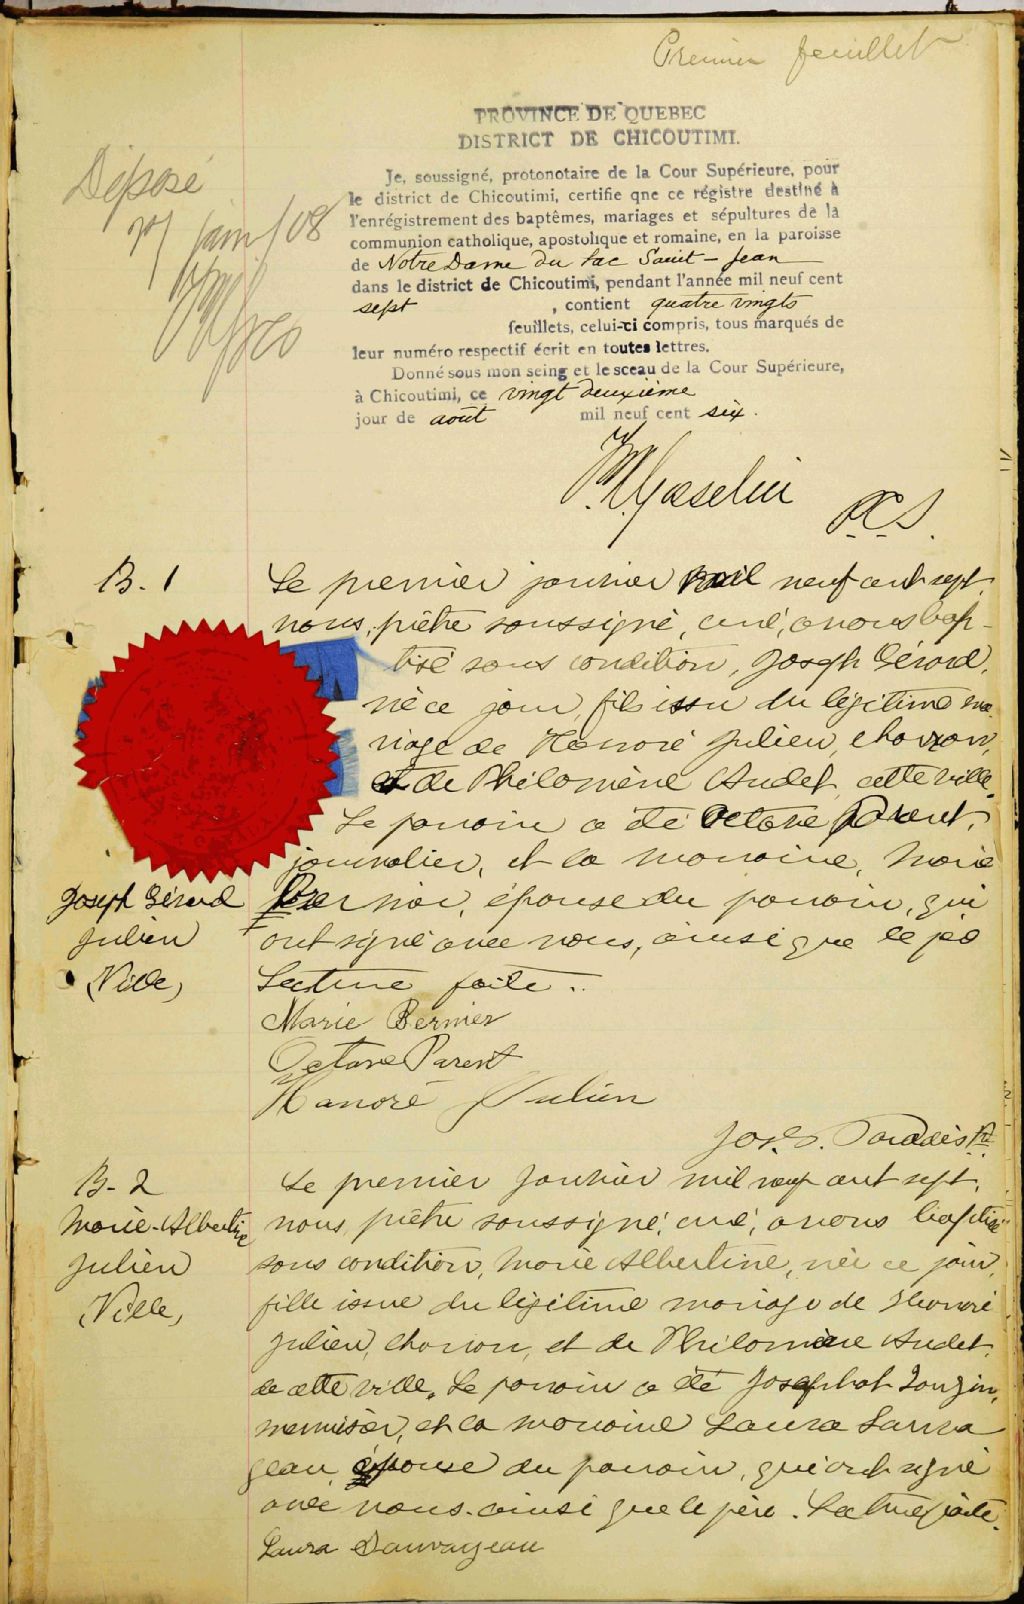 Premier feuillet
PROVINCE DE QUEBEC
DISTRICT DE CHICOUTIMI.
Déposé
janv/08
Je, soussigné, protonotaire de la Cour Supérieure, pour
le district de Chicoutimi, certifie qne ce régistre destiné à
l'enrégistrement des baptêmes, mariages et sépultures de la
communion catholique, apostolique et romaine, en la paroisse
de Notre Dame du Lac Saint-Jean
dans le district de Chicoutimi, pendant l'année mil neuf cent
sept , contient quatre vingts
feuillets, celui-ci compris, tous marqués de
leur numéro respectif écrit en toutes lettres.
Donné sous mon seing et le sceau de la Cour Supérieure,
à Chicoutimi, ce vingt deuxième
jour de août mil neuf cent six.
Gosselin
P.C.S.
B. 1
Le premier janvier mil neuf cent sept,
nous, prêtre soussigné, curé, avons bap-
tisé sous condition, Joseph Gérard,
né ce jour, fils issu du légitime ma-
riage de Honoré Julien, charron,
et de Philomène Audet, cette ville.
Le parrain a été Octave Parent,
journalier, et la marraine, Marie
Bernier, épouse du parrain, qui
ont signé avec nous, ainsi que le père
Lecture faite..
Joseph Gérard
Julien
(Ville)
Marie Bernier
Octave Parent
Honoré Julien
Jos. Paradis Ptr
B- 2
Marie-Albertine
Julien
(Ville,
Le premier janvier mil neuf cent sept,
nous, prêtre soussigné, curé, avons baptisé
sous condition, Marie Albertine, née ce jour,
fille issue du légitime mariage de Honoré
Julien, charron, et de Philomène Audet,
de cette ville. Le parrain a été Josaphat
menuisier, et la marraine Laura Sauva
geau épouse du parrain, qui ont signé
avec nous, ainsi que le père. Lecture faite.
Laura Sauvageau